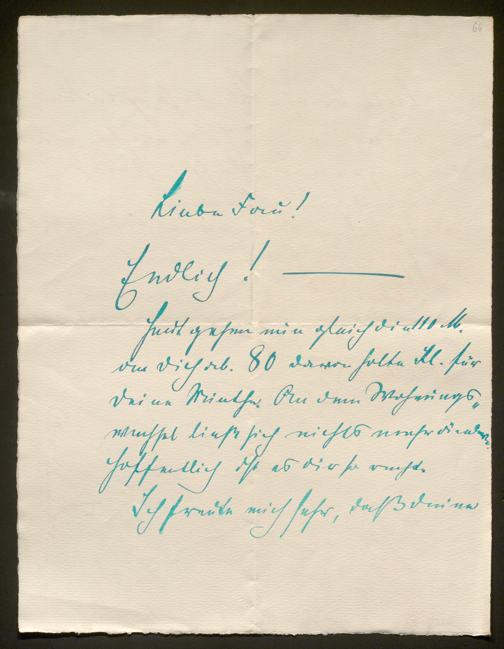 66
Liebe Frau!
Endlich! —
Heut gehen nun gleich die 110 M.
an dich ab. 80 davon halte für
deine Miethe. An dem Wohnungs„
wechsel ließ sich nichts mehr
hoffentlich ist es dir so recht.
Ich freute mich sehr, daß deine